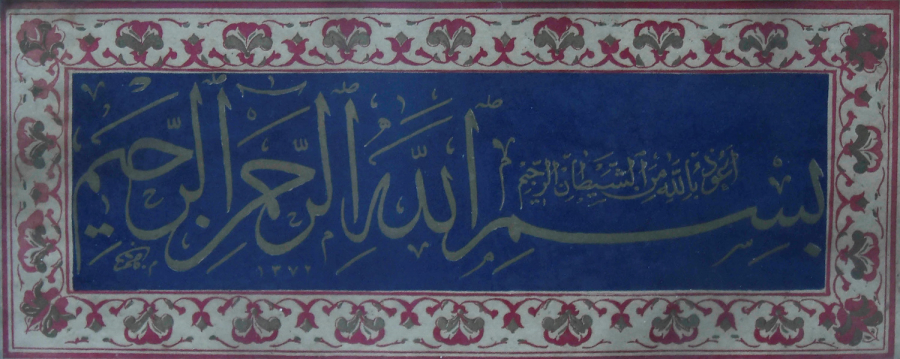 أعوذ بالله من الشيطان الرجيم
بِسْمِ اللَّهِ الرَّحْمَنِ الرَّحِيمِ
١٣٧٢